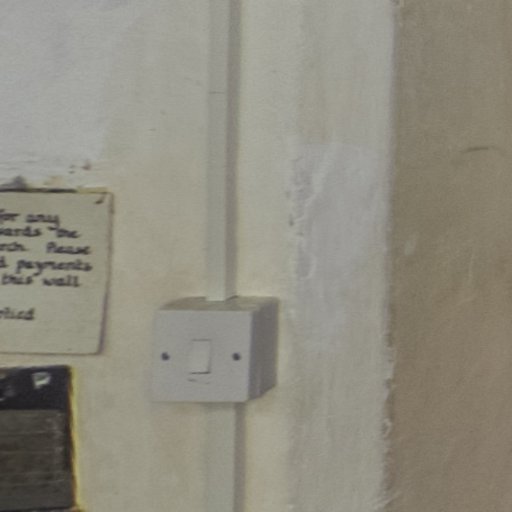 for any
wards the
rch. Please
d payments
this wall